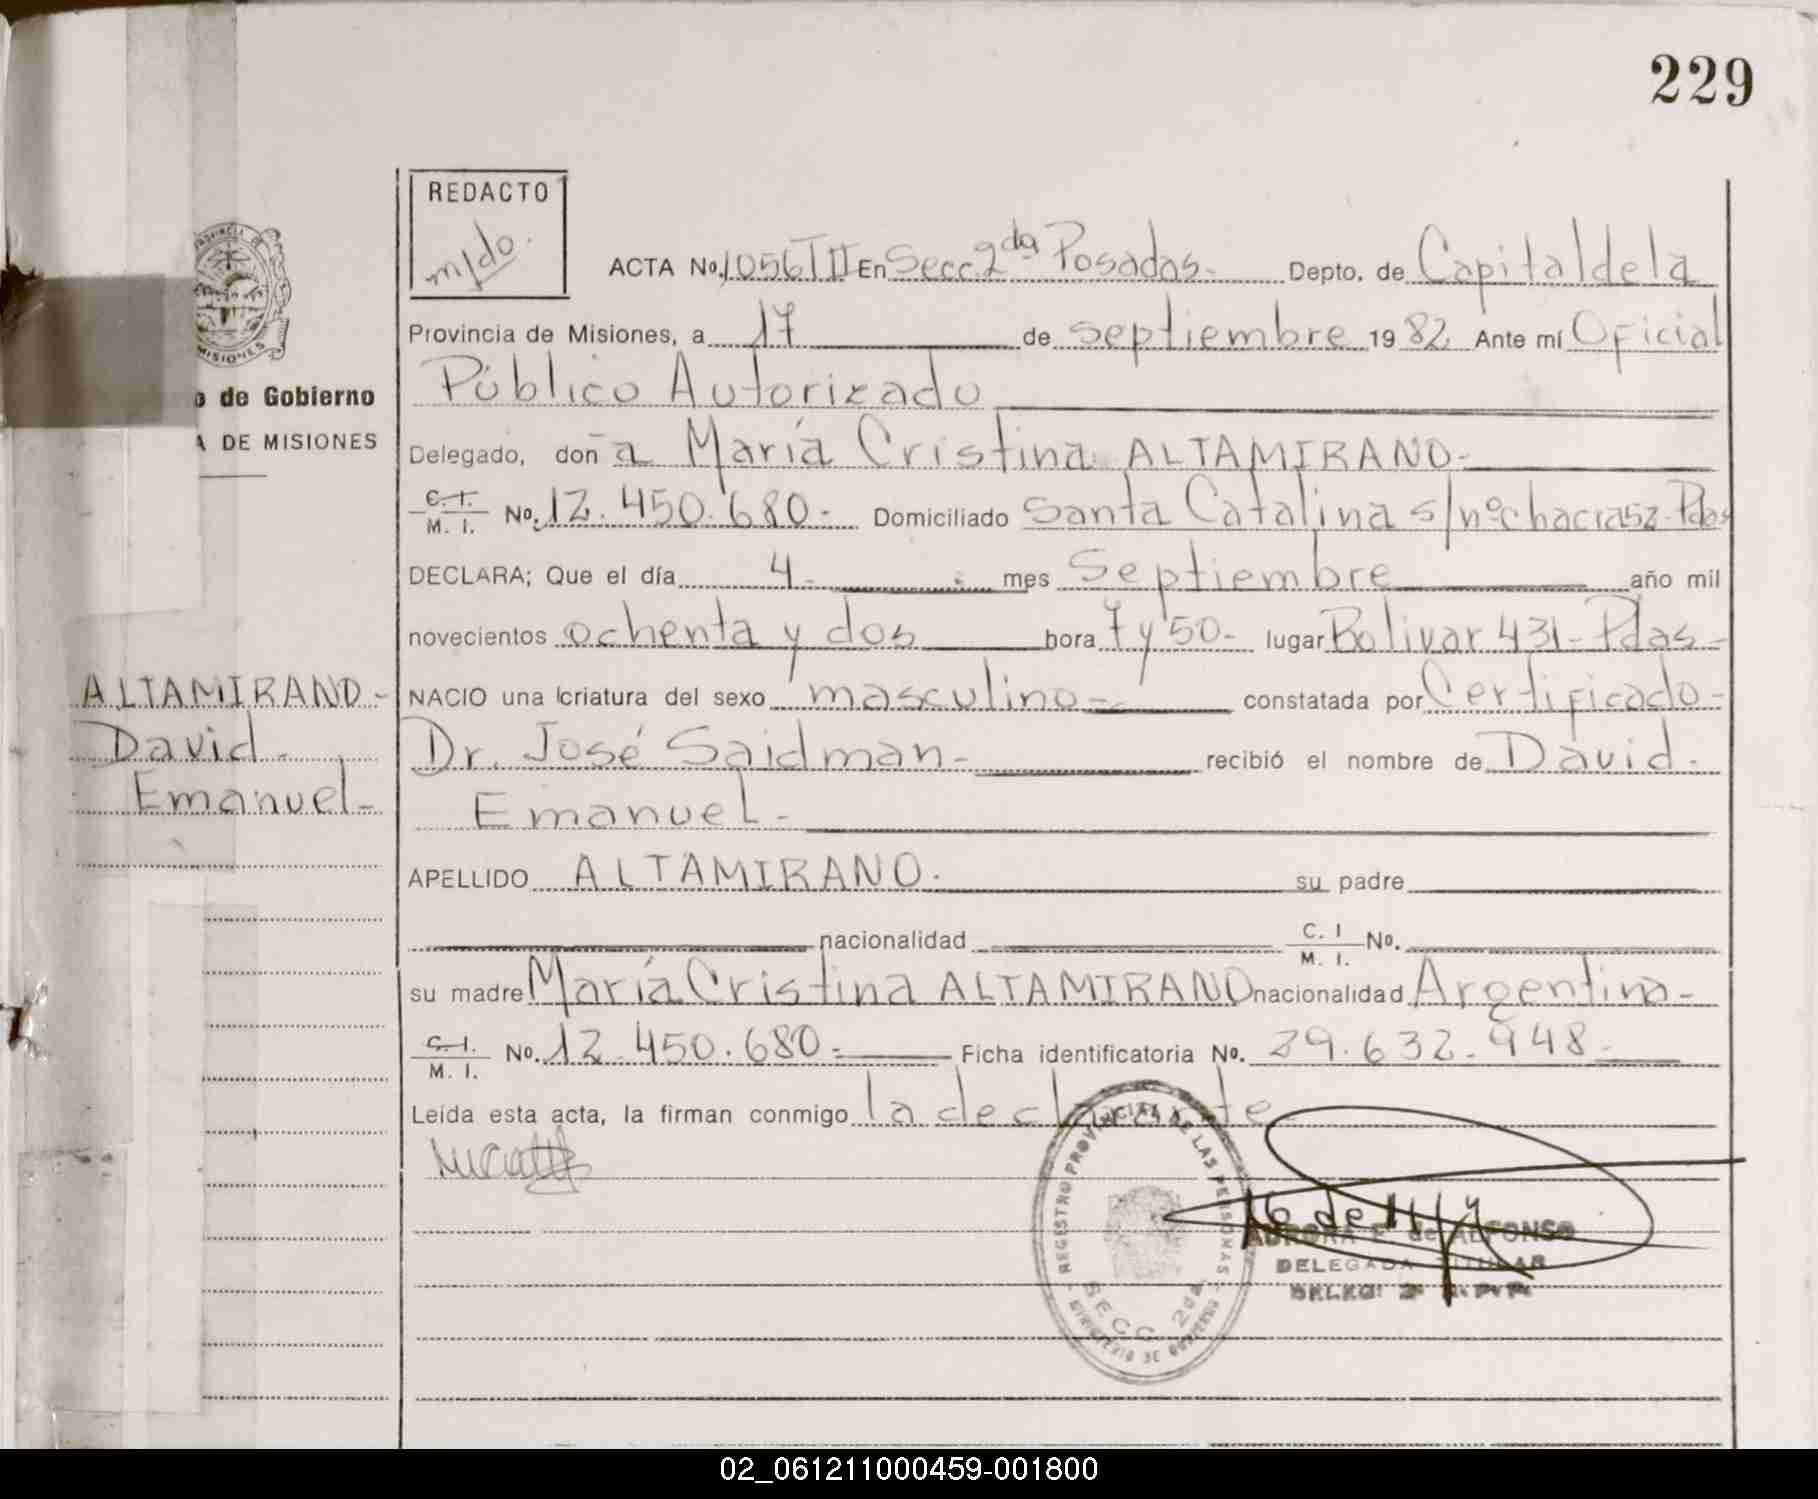 229
REDACTO
ACTA No. 1056 T II En Secc. 2da Posadas.- Depto. de Capital de la
Provincia de Misiones, a 17 de septiembre 19 82 Ante mí Oficial
Público Autorizado
o de Gobierno
A DE MISIONES
Delegado, doña María Cristina ALTAMIRANO-
C. I.
M. I. No. 12.450.680- Domiciliado Santa Catalina s/nº chacra 52- Pdas
DECLARA; Que el día 4- mes Septiembre año mil
novecientos ochenta y dos hora 7 y 50- lugar Bolivar 431- Pdas-
NACIO una criatura del sexo masculino- constatada por Certificado-
Dr. José Saidman- recibió el nombre de David-
Emanuel-
ALTAMIRANO-
David-
Emanuel-
APELLIDO ALTAMIRANO. su padre
nacionalidad C. I
M. I. No.
su madre María Cristina ALTAMIRANO nacionalidad Argentina-
C. I.
M. I. No. 12.450.680- Ficha identificatoria No. 29.632.948-
Leída esta acta, la firman conmigo la declarante
REGISTRO PROVINCIAL DE LAS PERSONAS
SECC. 2da.
MINISTERIO DE GOBIERNO
AURORA F. de ALFONSO
DELEGADA TITULAR
02_061211000459-001800